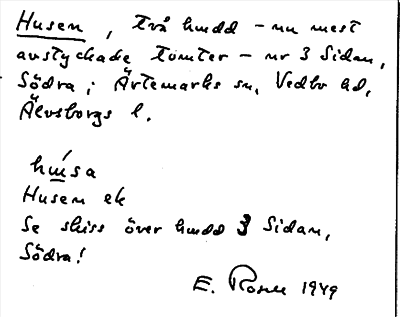 Husen, två hmdd - nu mest
avstyckade tomter - nr 3 Sidan,
Södra; Ärtemarks sn, Vedbo hd,
Älvsborgs l.
hu̳sa
Husen ek
Se skiss över hmdd 3 Sidan,
Södra!
E. Rosell 1949